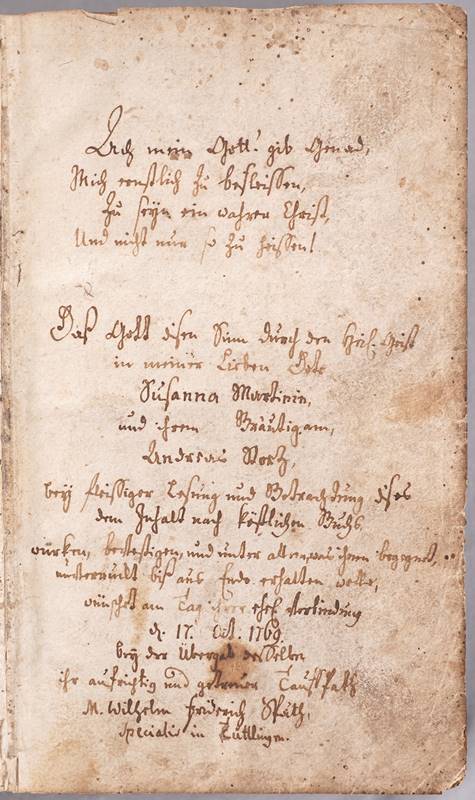 Ach mein Gott! gib Genad,
Mich ernstlich zu befleissen,
Zu seyn ein wahrer Christ,
Und nicht nur so zu heissen!
Daß Gott disen Sinn durch den Heil. Geist
in meiner Lieben Dote
Susanna Martinin,
und ihrem Bräutigam,
Andreas Storz,
bey fleissiger Lesung und Betrachtung dises
dem Inhalt nach köstlichen Buchs,
würken, bevestigen, und unter allem, was ihnen begegnet,
unverruckt biß ans Ende erhalten wolle,
wünschet am Tag ihrer ehel. Verbindung
d. 17. Oct. 1769.
bey der Übergab desselben
ihr aufrichtig und getreuer Tauffpath
M. Wilhelm Friderich Späth,
Specialis in Tuttlingen.